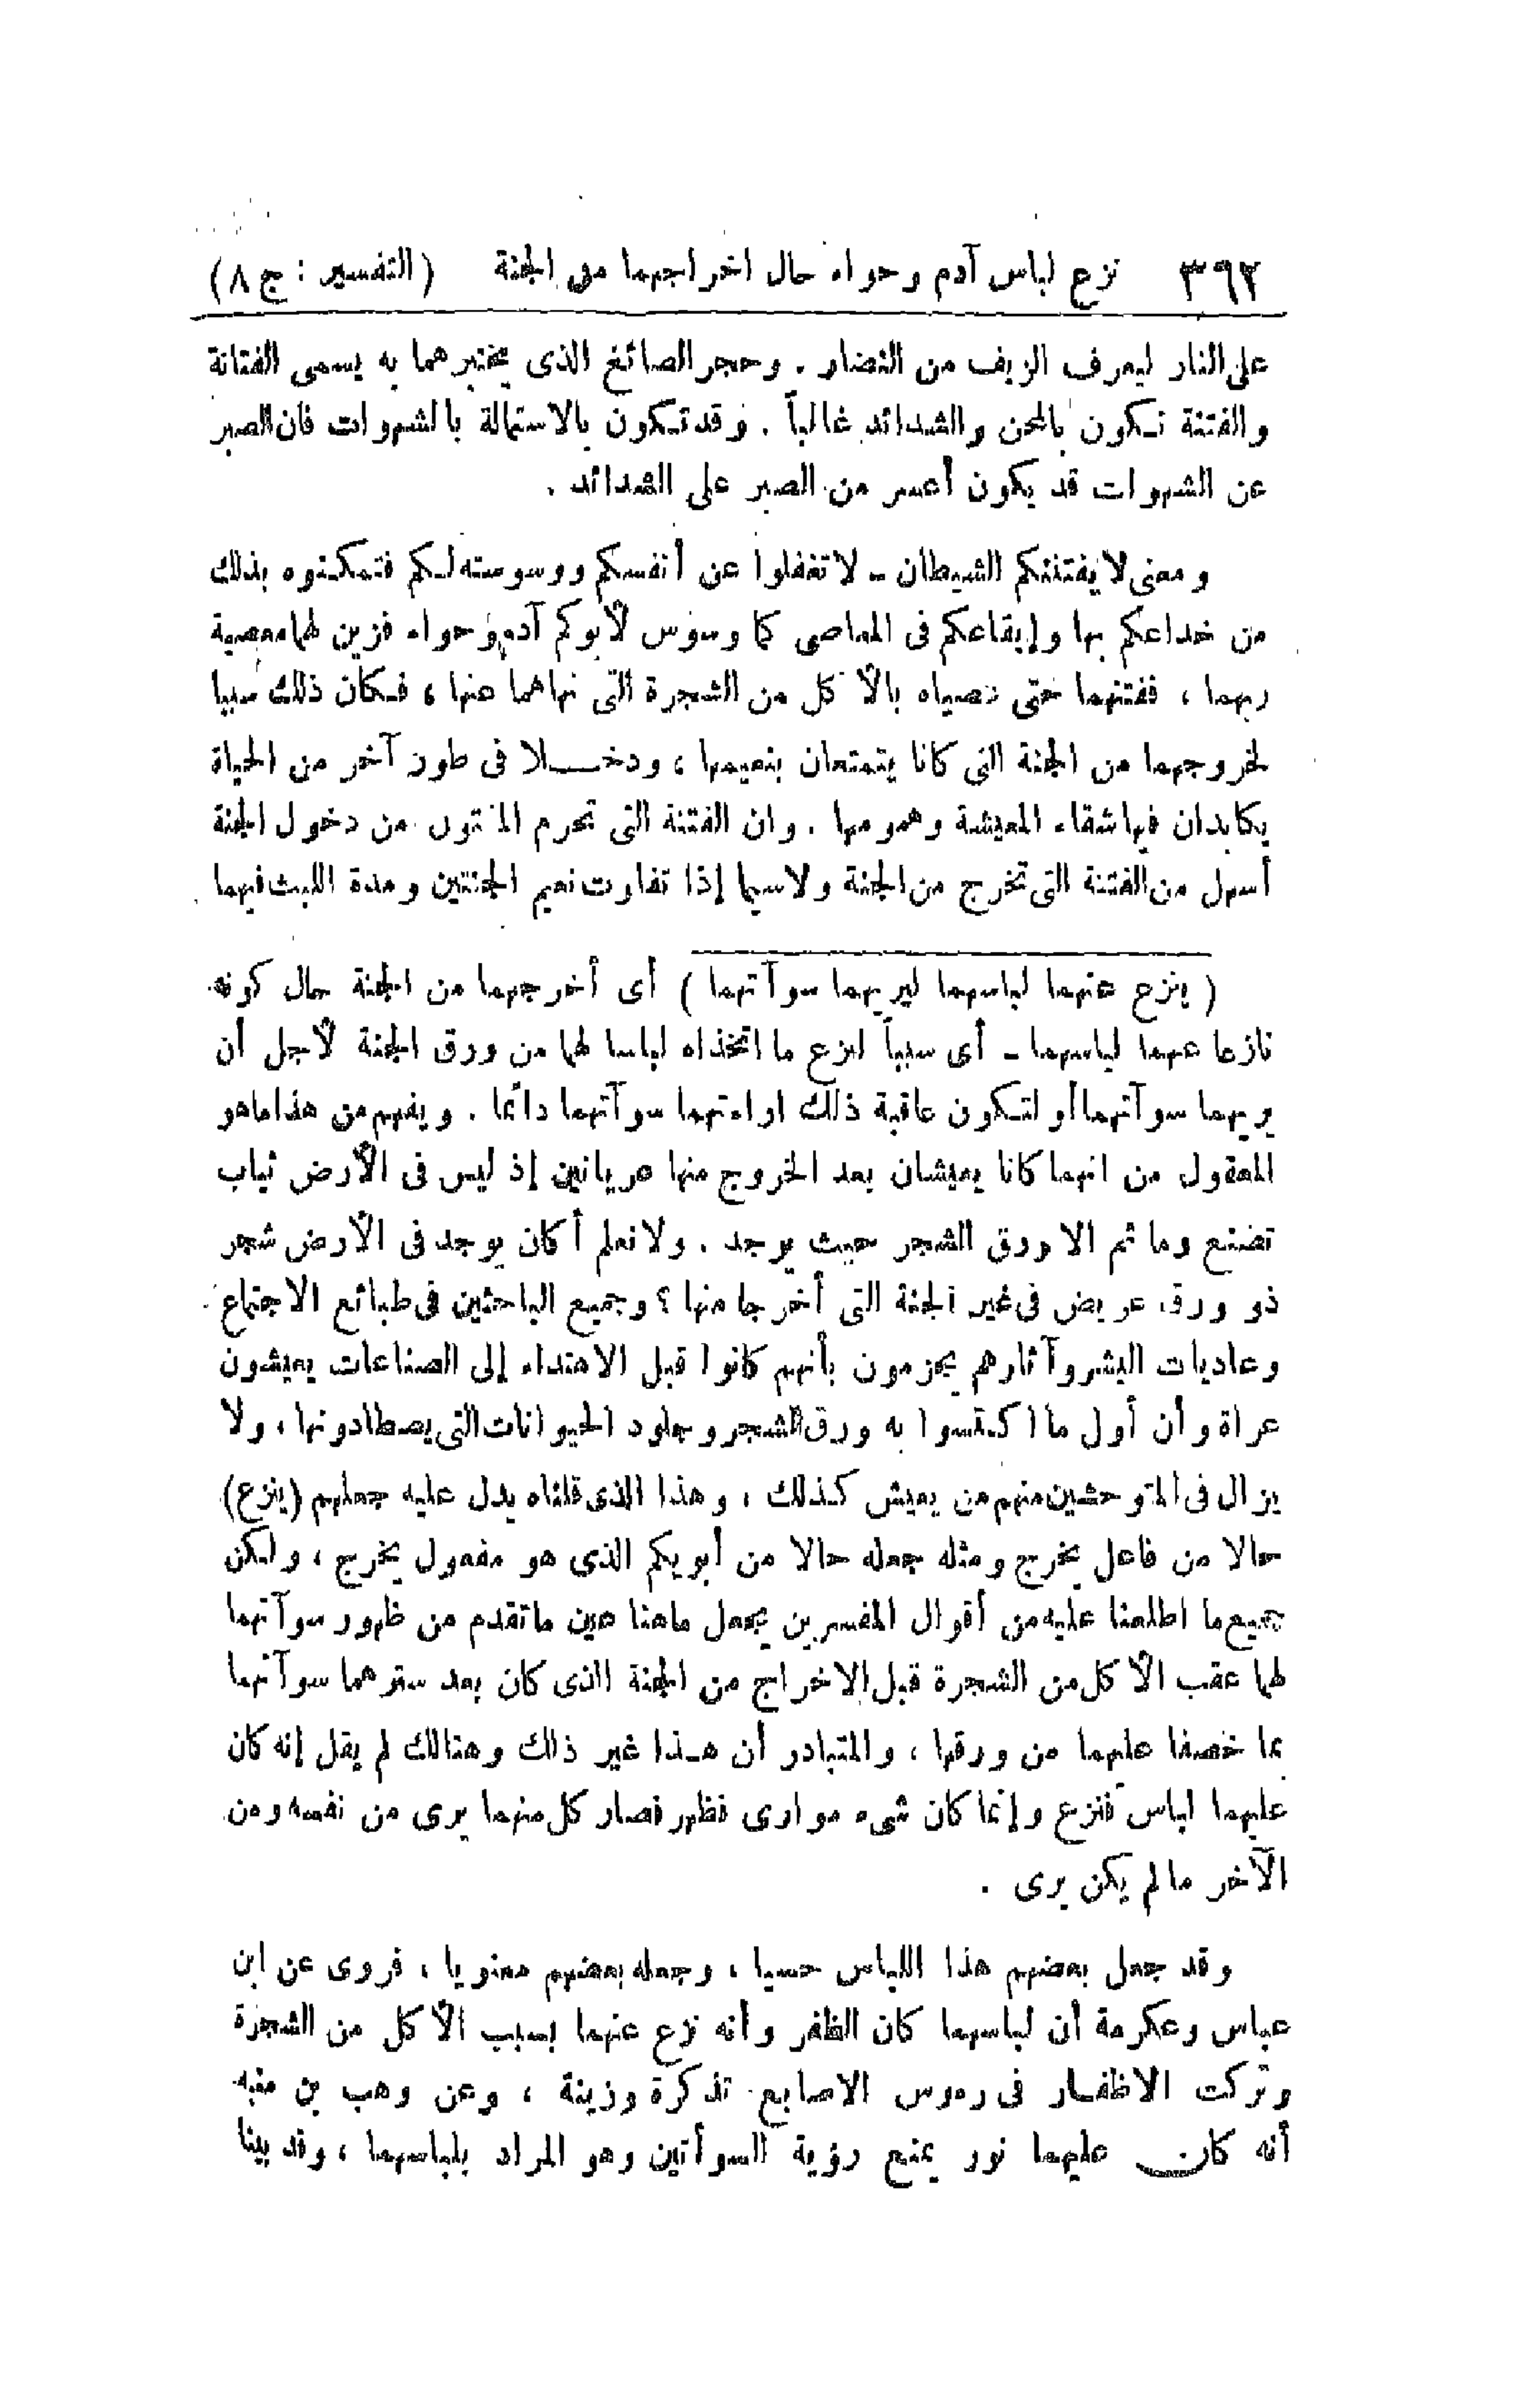 ٣٩٢ نزع لباس آدم وحواء حال اخراجهما من الجنة (التفسير : ج ٨)
على النار ليعرف الزيف من النضار . وحجر الصائغ الذى يختبرهما به يسمى الفتانة
والفتنة تكون بالمحن والشدائد غالباً . وقد تكون بالاستمالة بالشهوات فان الصبر
عن الشهوات قد يكون أعسر من الصبر على الشدائد .
ومعنى لا يفتننكم الشيطان - لا تغفلوا عن أنفسكم ووسوسته لكم فتمكنوه بذلك
من خداعكم بها وإيقاعكم فى المعاصى كما وسوس لأبوكم آدم وحواء فزين لهما معصية
ربهما ، ففتنهما حتى عصياه بالأكل من الشجرة التى نهاهما عنها ، فكان ذلك سببا
لخروجهما من الجنة التى كانا يتمتعان بنعيمها ، ودخـــلا فى طور آخر من الحياة
يكابدان فيها شقاء المعيشة وهمومها . وان الفتنة التى تحرم المفتون من دخول الجنة
أسهل من الفتنة التى تخرج من الجنة ولا سيما إذا تفاوت نعيم الجنتين ومدة اللبث فيهما
( ينزع عنهما لباسهما ليريهما سوآتهما ) أى أخرجهما من الجنة حال كونه
نازعا عنهما لباسهما - أى سبباً لنزع ما اتخذاه لباسا لهما من ورق الجنة لأجل أن
يريهما سوآتهما أو لتكون عاقبة ذلك اراءتهما سوآتهما دائما . ويفهم من هذا ما هو
المعقول من انهما كانا يعيشان بعد الخروج منها عريانين إذ ليس فى الأرض ثياب
تصنع وما ثم الا ورق الشجر حيث يوجد . ولا نعلم أكان يوجد فى الأرض شجر
ذو ورق عريض فى غير الجنة التى أخرجا منها ؟ وجميع الباحثين فى طبائع الاجتماع
وعاديات البشر وآثارهم يجزمون بأنهم كانوا قبل الاهتداء إلى الصناعات يعيشون
عراة وأن أول ما اكتسوا به ورق الشجر وجلود الحيوانات التى يصطادونها ، ولا
يزال فى المتوحشين منهم من يعيش كذلك ، وهذا الذى قلناه يدل عليه جعلهم (ينزع)
حالا من فاعل يخرج ومثله جعله حالا من أبويكم الذى هو مفعول يخرج ، ولكن
جميع ما اطلعنا عليه من أقوال المفسرين يجعل ماهنا عين ما تقدم من ظهور سوآتهما
لهما عقب الأكل من الشجرة قبل الاخراج من الجنة الذى كان بعد سترهما سوآتهما
بما خصفا عليهما من ورقها ، والمتبادر أن هـذا غير ذلك وهنالك لم يقل إنه كان
عليهما لباس فنزع وإنما كان شىء موارى فظهر فصار كل منهما يرى من نفسه ومن
الآخر مالم يكن يرى .
وقد جعل بعضهم هذا اللباس حسيا ، وجعله بعضهم معنويا ، فروى عن ابن
عباس وعكرمة أن لباسهما كان الظفر وأنه نزع عنهما بسبب الأكل من الشجرة
وتركت الاظفـار فى رءوس الاصابع تذكرة وزينة ، وعن وهب بن منبه
أنه كان عليهما نور يمنع رؤية السوأتين وهو المراد بلباسهما ، وقد بينا